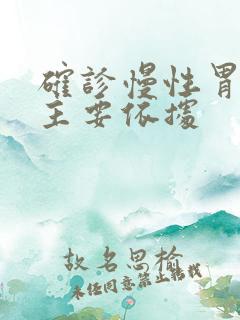 確診慢性胃
主要依據
故名思榆
未經同意禁止轉載